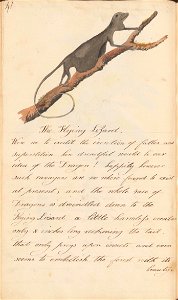 The Flying Lizard.
Were we to credit the invention of fables and
superstition how dreadful would be our
idea of the Dragon! Happily however
such ravages are no where found to exist
at present, and the whole race of
Dragons is dwindled down to the
Flying Lizard a little harmless creature
only 12 inches long reckoning the tail,
that only preys upon insects and even
seems to embellish the forest with its
beauties